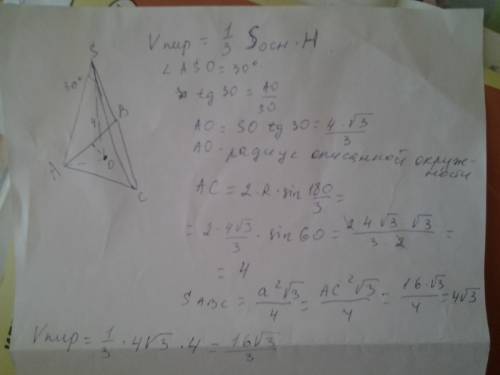 Vпир = 1/3 Sосн · H
∠ASO = 30°
tg 30 = AO/SO
AO = SO tg 30 = 4·√3/3
AO - радиус описанной окруж-
ности
AC = 2·R·sin 180/3 =
= 2·4√3/3 · sin 60 = 2 4 √3 √3/3 2 =
= 4
S ABC = a²√3/4 = AC²√3/4 = 16·√3/4 = 4√3
Vпир = 1/3 · 4√3 · 4 = 16√3/3
S
30°
B
4
O
A
C